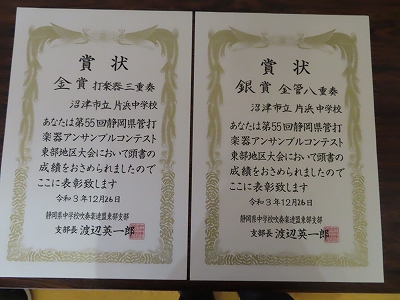 賞状
金賞 打楽器三重奏
沼津市立 片浜中学校
あなたは第55回静岡県管打
楽器アンサンブルコンテスト
東部地区大会において頭書の
成績をおさめられましたので
ここに表彰致します
令和3年12月26日
静岡県中学校吹奏楽連盟東部支部
支部長 渡辺英一郎
賞状
銀賞 金管八重奏
沼津市立 片浜中学校
あなたは第55回静岡県管打
楽器アンサンブルコンテスト
東部地区大会において頭書の
成績をおさめられましたので
ここに表彰致します
令和3年12月26日
静岡県中学校吹奏楽連盟東部支部
支部長 渡辺英一郎